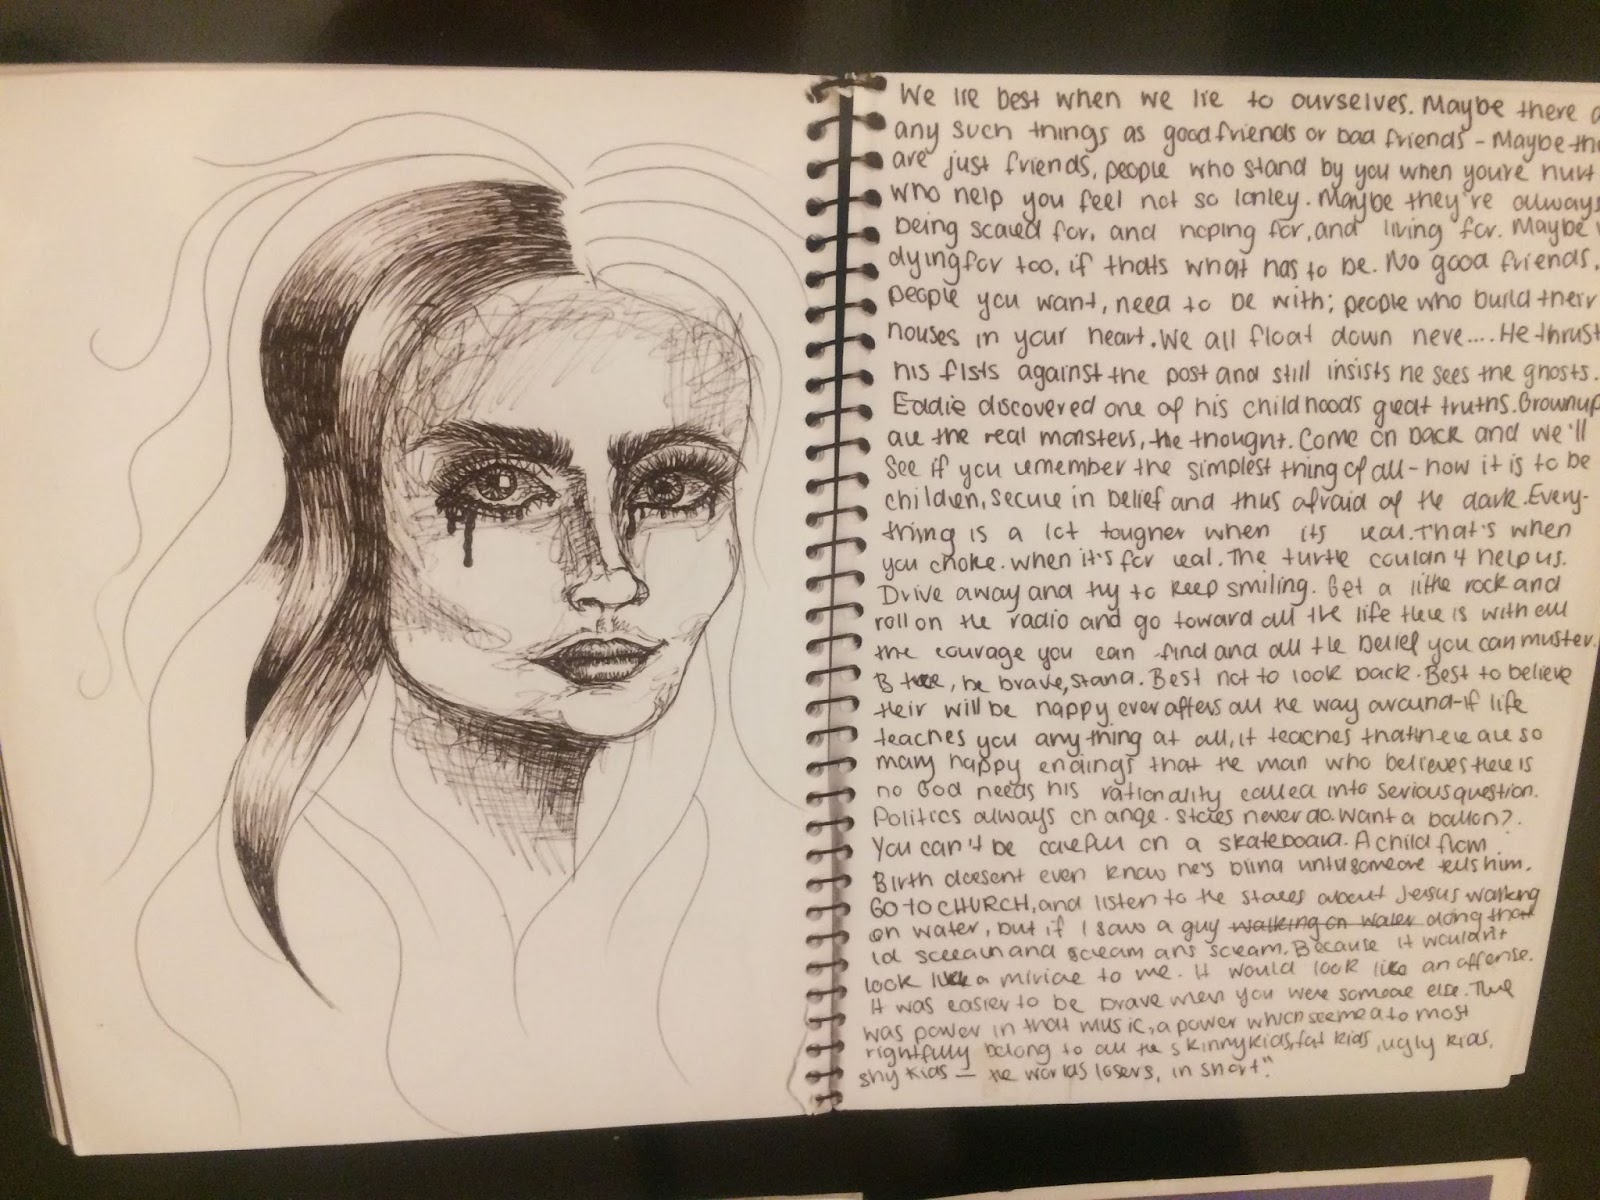 We lie best when we lie to ourselves. Maybe there a
any such things as good friends or bad friends - Maybe the
are just friends, people who stand by you when youre hurt
who help you feel not so lonley. Maybe they're always
being scared for, and hoping for, and living for. Maybe
dying for too, if thats what has to be. No good friends,
people you want, need to be with; people who build their
houses in your heart. We all float down here.... He thrust
his fists against the post and still insists he sees the ghosts.
Eddie discovered one of his childhoods great truths. Grownup
are the real monsters, he thought. Come on back and we'll
See if you remember the simplest thing of all - how it is to be
children, secure in belief and thus afraid of the dark. Every-
thing is a lot tougher when its real. That's when
you choke. when it's for real. The turtle couldn't help us.
Drive away and try to keep smiling. Get a little rock and
roll on the radio and go toward all the life there is with all
the courage you can find and all the belief you can muster.
B true, be brave, stand. Best not to look back. Best to believe
their will be happy ever afters all the way around - if life
teaches you anything at all, it teaches that there are so
many happy endings that the man who believes there is
no God needs his rationality called into serious question.
Politics always change. stories never do. Want a ballon?.
You can't be careful on a skateboard. A child from
Birth doesent even know he's blind until someone tells him.
GO TO CHURCH, and listen to the stories about Jesus walking
on water, but if I saw a guy walking on water doing that
id scream and scream ans scream. Because it wouldn't
look like a miricae to me. It would look like an offense.
It was easier to be brave when you were someone else. There
was power in that music, a power which seemed to most
rightfully belong to all the skinny kids, fat kids, ugly kids,
shy kids — the worlds losers, in short."